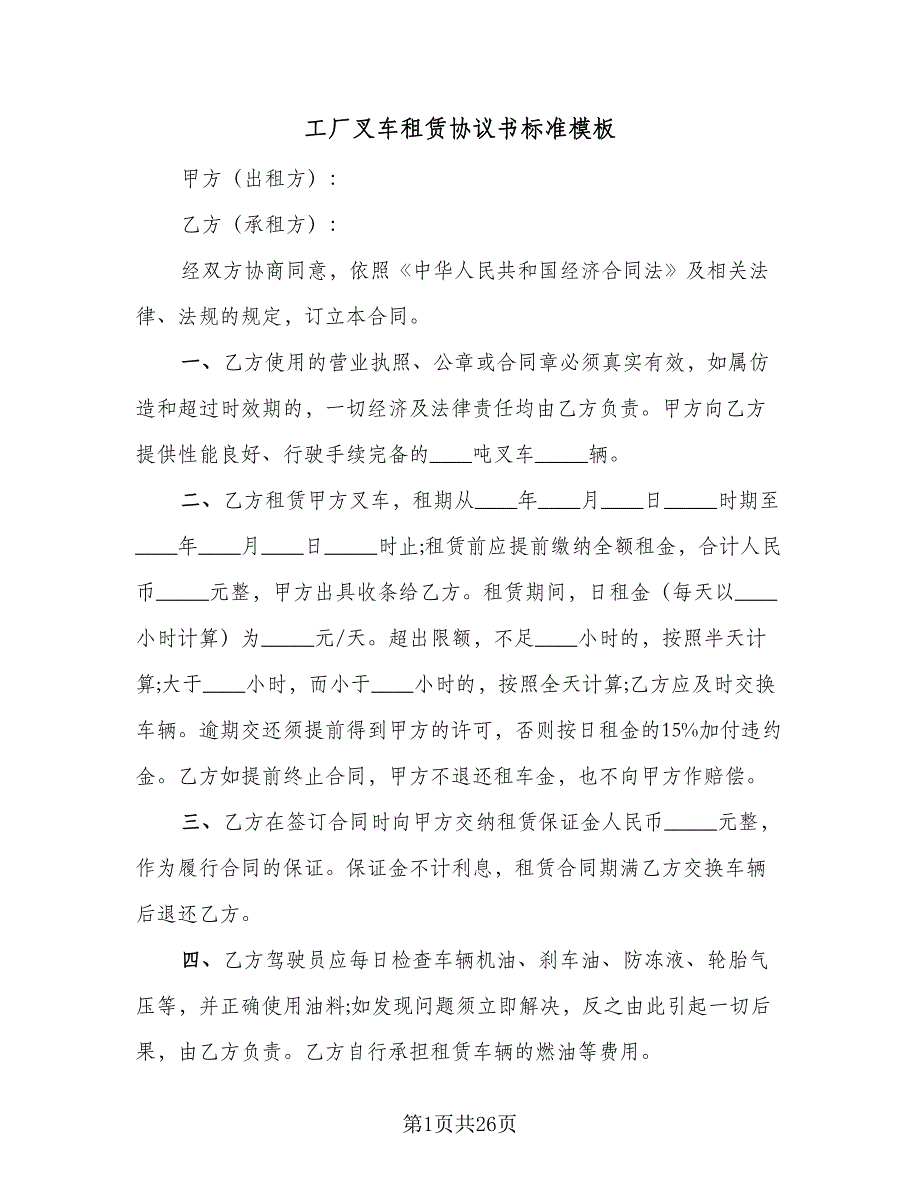 工厂叉车租赁协议书标准模板
甲方（出租方）：
乙方（承租方）：
经双方协商同意，依照《中华人民共和国经济合同法》及相关法
律、法规的规定，订立本合同。
一、乙方使用的营业执照、公章或合同章必须真实有效，如属仿
造和超过时效期的，一切经济及法律责任均由乙方负责。甲方向乙方
提供性能良好、行驶手续完备的____吨叉车_____辆。
二、乙方租赁甲方叉车，租期从____年____月____日_____时期至
____年____月____日_____时止;租赁前应提前缴纳全额租金，合计人民
币_____元整，甲方出具收条给乙方。租赁期间，日租金（每天以____
小时计算）为_____元/天。超出限额，不足____小时的，按照半天计
算;大于____小时，而小于____小时的，按照全天计算;乙方应及时交换
车辆。逾期交还须提前得到甲方的许可，否则按日租金的15%加付违约
金。乙方如提前终止合同，甲方不退还租车金，也不向甲方作赔偿。
三、乙方在签订合同时向甲方交纳租赁保证金人民币_____元整，
作为履行合同的保证。保证金不计利息，租赁合同期满乙方交换车辆
后退还乙方。
四、乙方驾驶员应每日检查车辆机油、刹车油、防冻液、轮胎气
压等，并正确使用油料;如发现问题须立即解决，反之由此引起一切后
果，由乙方负责。乙方自行承担租赁车辆的燃油等费用。
第1页共26页